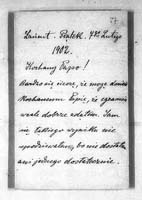 27
Łańcut. Piątek. 7go Lutego
1902.
Kochany Papo!
Bardzo się cieszę, że mogę donieść
Kochanemu Papie, że egzamin
wcale dobrze zdałem. Sam
się takiego wyniku nie
spodziewałem, bo nie dostałem
ani jednego dostatecznie.